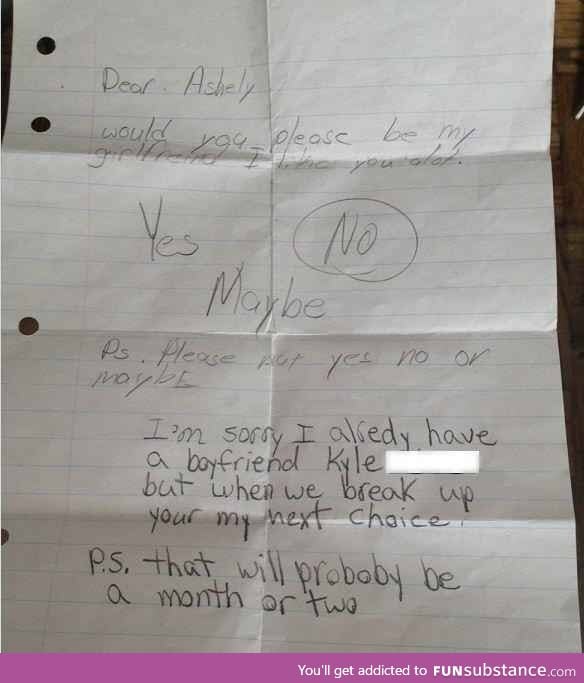 Dear. Ashely
would you please be my
girlfriend I like you alot.
Yes NO
Maybe
Ps. Please put yes no or
maybE
I'm sorry I alredy have
a boyfriend Kyle
but when we break up
your my next choice.
P.S. that will proboby be
a month or two
You'll get addicted to FUNsubstance.com